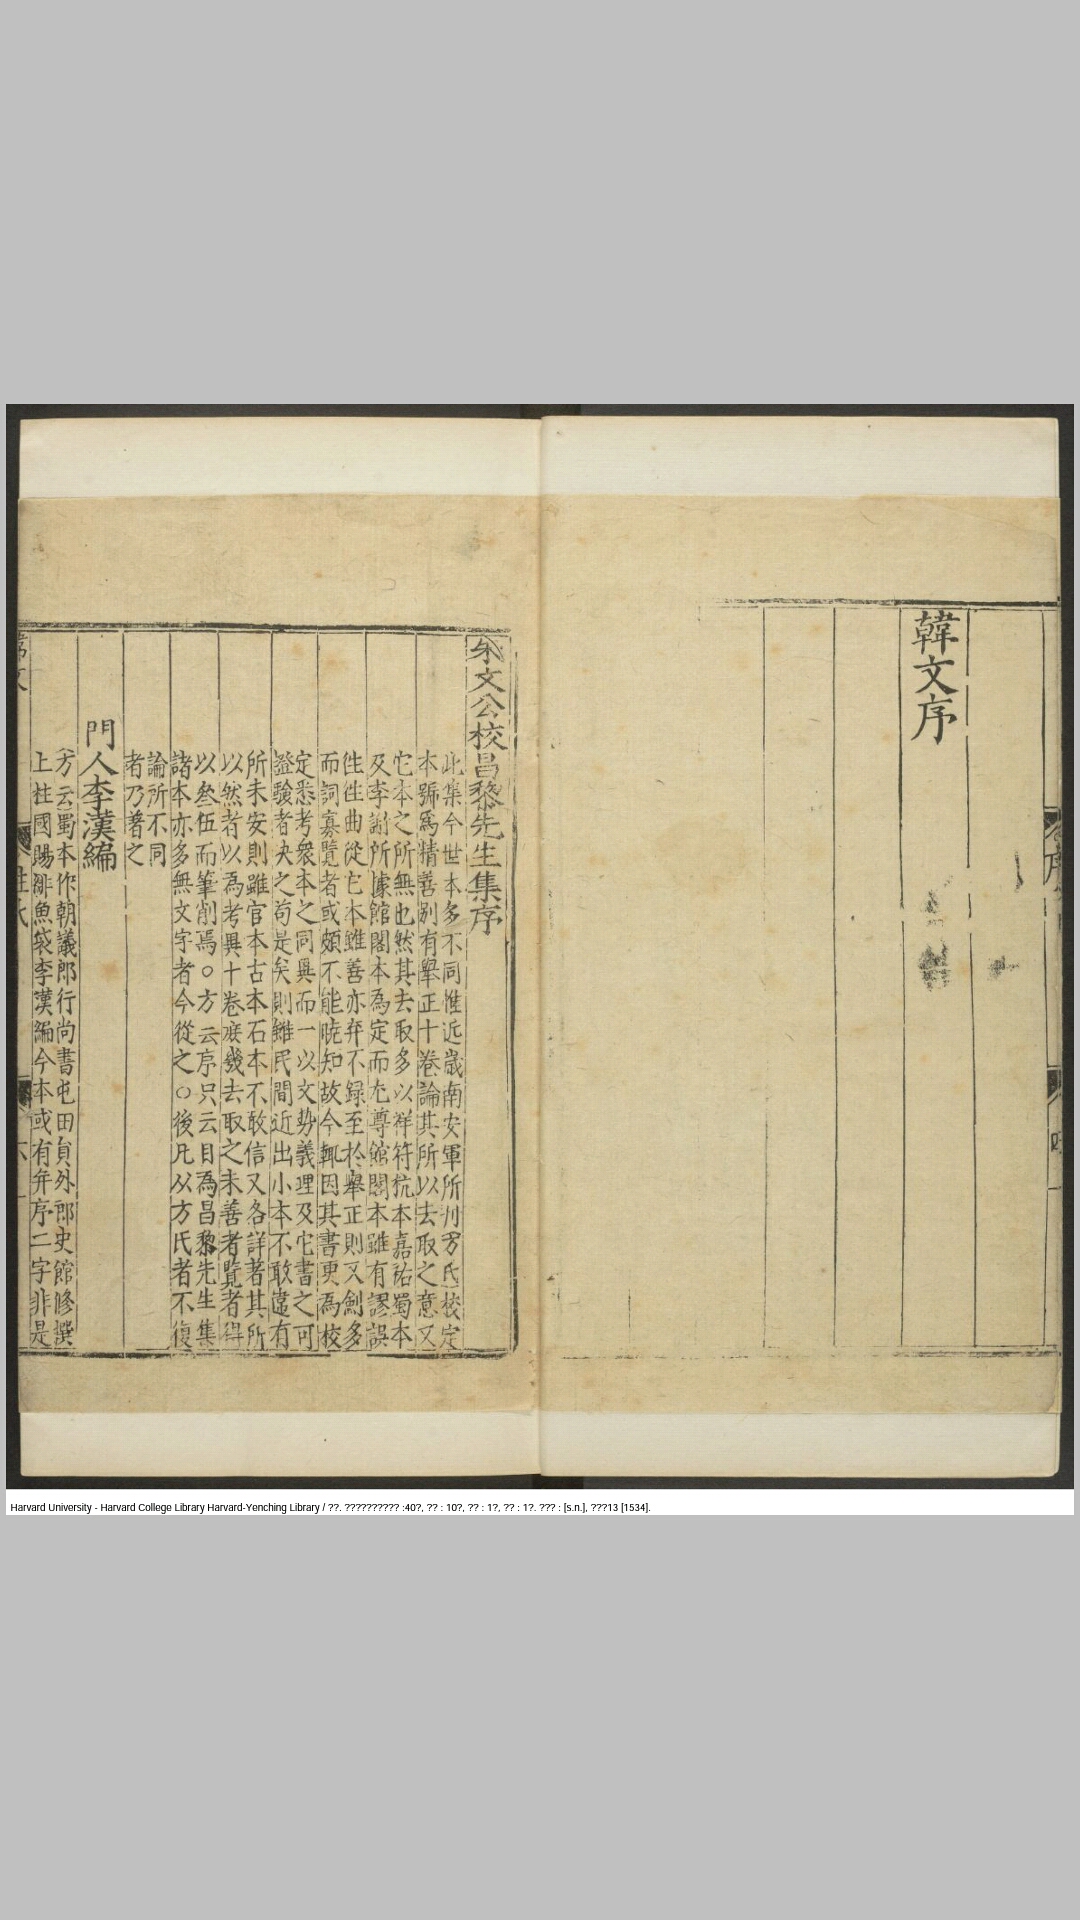 韓文序
朱文公校昌黎先生集序
此集今世本多不同惟近歲南安軍所刋方氏校定
本號爲精善別有舉正十卷論其所以去取之意又
它本之所無也然其去取多以祥符杭本嘉祐蜀本
及李謝所據館閣本為定而尤尊館閣本雖有謬誤
徃徃曲從它本雖善亦弃不録至於舉正則又創多
而詞寡覽者或頗不能曉知故今輒因其書更為校
定悉考衆本之同異而一以文勢義理及它書之可
證驗者决之苟是矣則雖民間近出小本不敢違有
所未安則雖官本古本石本不敢信又各詳著其所
以然者以爲考異十卷庻幾去取之未善者覽者得
以叅伍而筆削焉○方云序只云目為昌黎先生集
諸本亦多無文字者今從之○後凡从方氏者不復
論所不同
者乃著之
門人李漢編
方云蜀本作朝議郎行尚書屯田員外郎史館修撰
上柱國賜緋魚袋李漢編今本或有并序二字非是
韓文
Harvard University - Harvard College Library Harvard-Yenching Library / ??. ?????????? :40?, ?? : 10?, ?? : 1?, ?? : 1?. ??? : [s.n.], ???13 [1534].